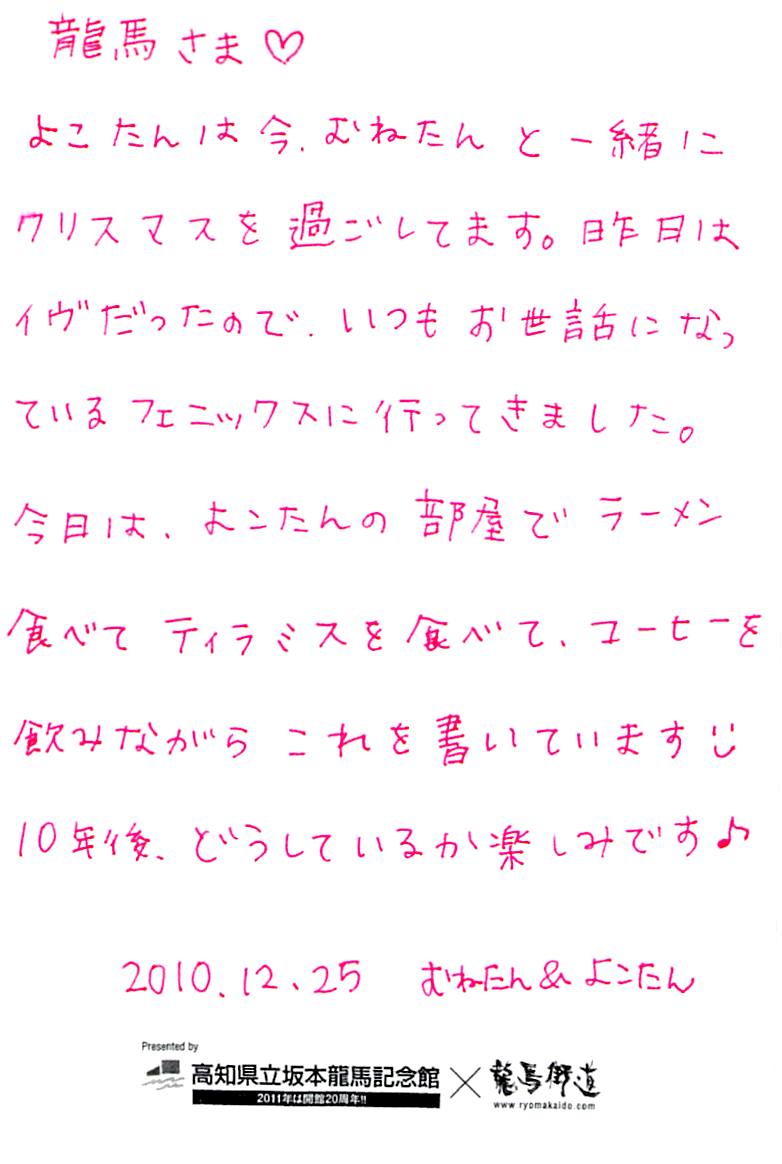 龍馬さま♡
よこたんは今、むねたんと一緒に
クリスマスを過ごしてます。昨日は
イヴだったので、いつもお世話になっ
ているフェニックスに行ってきました。
今日は、よこたんの部屋でラーメン
食べてティラミスを食べて、コーヒーを
飲みながらこれを書いています
10年後、どうしているか楽しみです♪
2010.12.25 むねたん&よこたん
Presented by
高知県立坂本龍馬記念館 × 龍馬街道
2011年は開館20周年!! www.ryomakaido.com